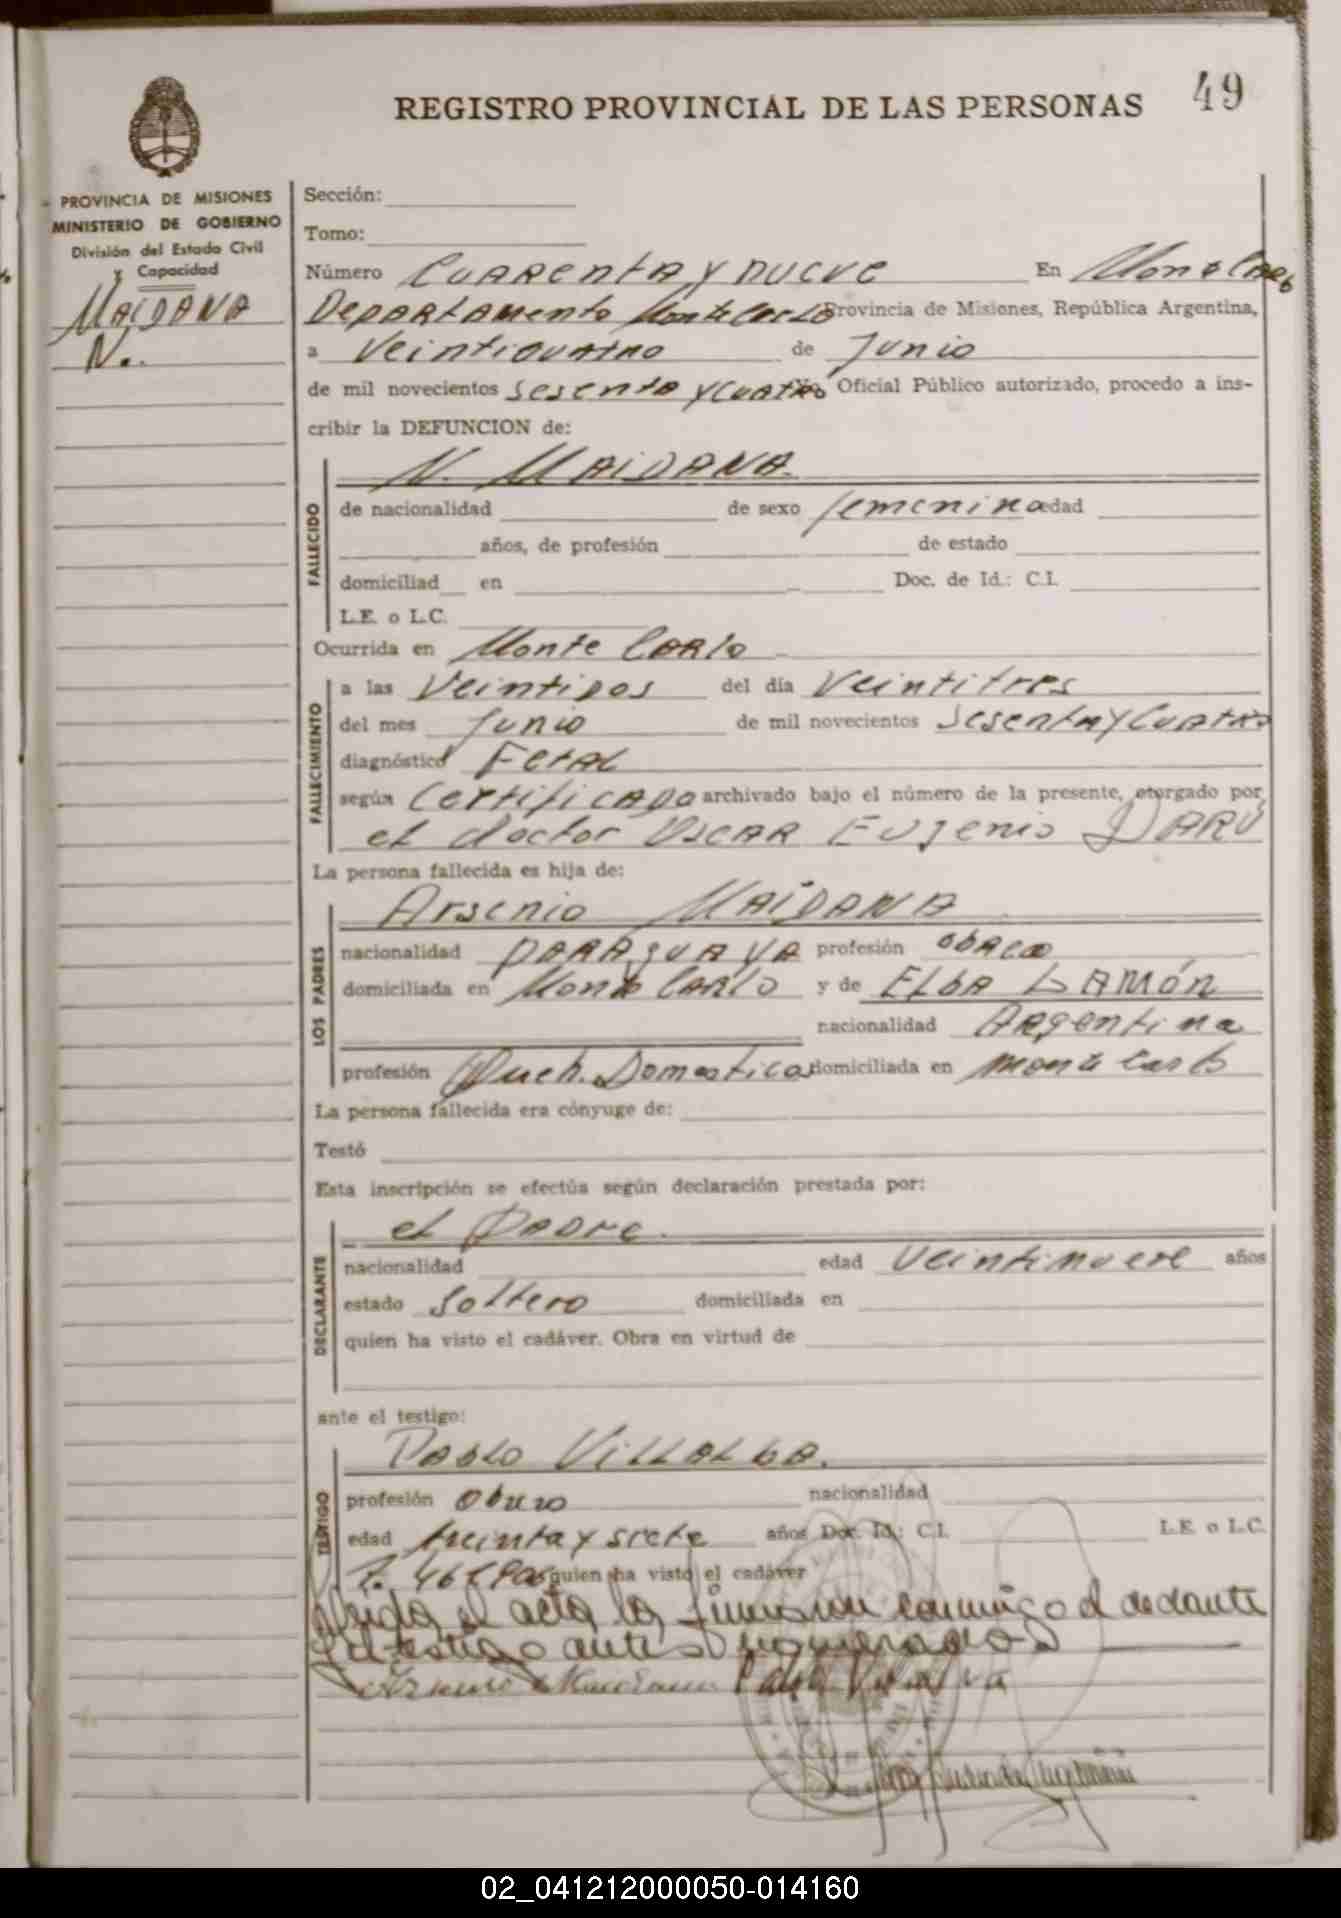 49
REGISTRO PROVINCIAL DE LAS PERSONAS
PROVINCIA DE MISIONES
MINISTERIO DE GOBIERNO
División del Estado Civil
y Capacidad
MAIDANA
N.
Sección:
Tomo:
Número CUARENTA Y NUEVE En Monte Carlo
Departamento Monte Carlo Provincia de Misiones, República Argentina,
a Veinticuatro de Junio
de mil novecientos Sesenta y Cuatro Yo Oficial Público autorizado, procedo a ins-
cribir la DEFUNCION de:
N. MAIDANA
FALLECIDO
de nacionalidad de sexo femenino edad
años, de profesión de estado
domiciliad en Doc. de Id.: C.I.
L.E. o L.C.
Ocurrida en Monte Carlo
FALLECIMIENTO
a las Veintidos del día Veintitres
del mes Junio de mil novecientos Sesenta y Cuatro
diagnóstico Fetal
según Certificado archivado bajo el número de la presente, otorgado por
el doctor Oscar Eugenio DARÚ
La persona fallecida es hija de:
Arsenio MAIDANA
LOS PADRES
nacionalidad PARAGUAYA profesión obrero
domiciliada en Monte Carlo y de ELBA RAMÓN
nacionalidad Argentina
profesión Queh. Domesticos domiciliada en Monte Carlo
La persona fallecida era cónyuge de:
Testó
Esta inscripción se efectúa según declaración prestada por:
el Padre.
DECLARANTE
nacionalidad edad Veintinueve años
estado Soltero domiciliada en
quien ha visto el cadáver. Obra en virtud de
ante el testigo:
PABLO VILLALBA.
TESTIGO
profesión Obrero nacionalidad
edad treinta y siete años Doc. Id.: C.I. L.E. o L.C.
quien ha visto el cadáver
leida el acta la firmaron conmigo el declarante
y el testigo antes nomerados
Pablo Villalva
02_041212000050-014160